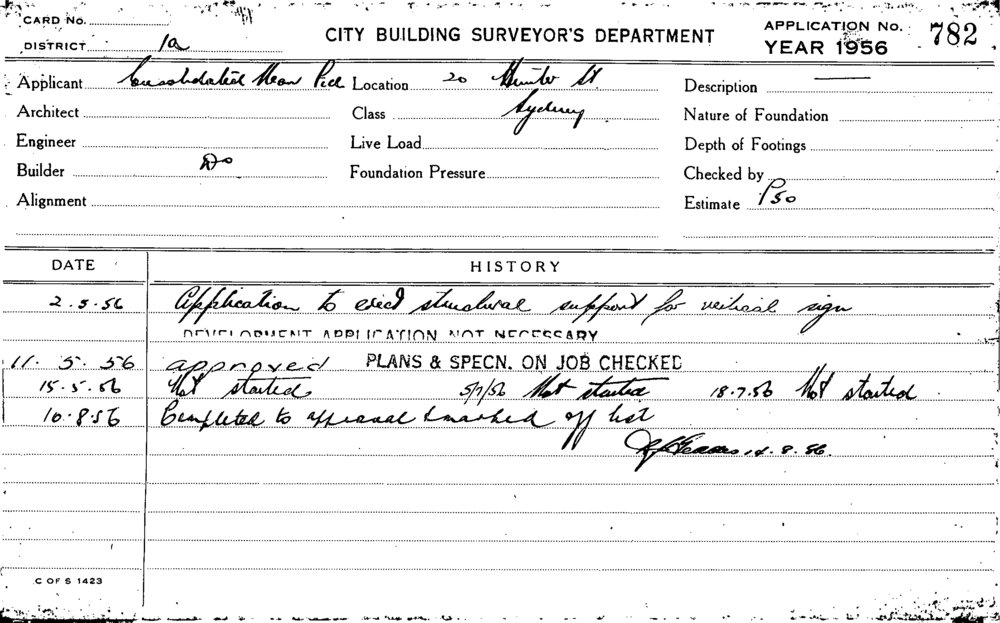 CARD No.
DISTRICT 1a
CITY BUILDING SURVEYOR'S DEPARTMENT
APPLICATION No. 782
YEAR 1956
Applicant Consolidated Neon Location 20 Hunter St Description
Architect Class Sydney Nature of Foundation
Engineer Live Load Depth of Footings
Builder Do Foundation Pressure Checked by
Alignment Estimate P50
DATE HISTORY
2.5.56 Application to erect structural support for vertical sign
DEVELOPMENT APPLICATION NOT NECESSARY
11.5.56 approved PLANS & SPECN. ON JOB CHECKED
15.5.56 Not started 5/7/56 Not started 18.7.56 Not started
10.8.56 Completed to approval & marked off list
14.8.56
C OF S 1423